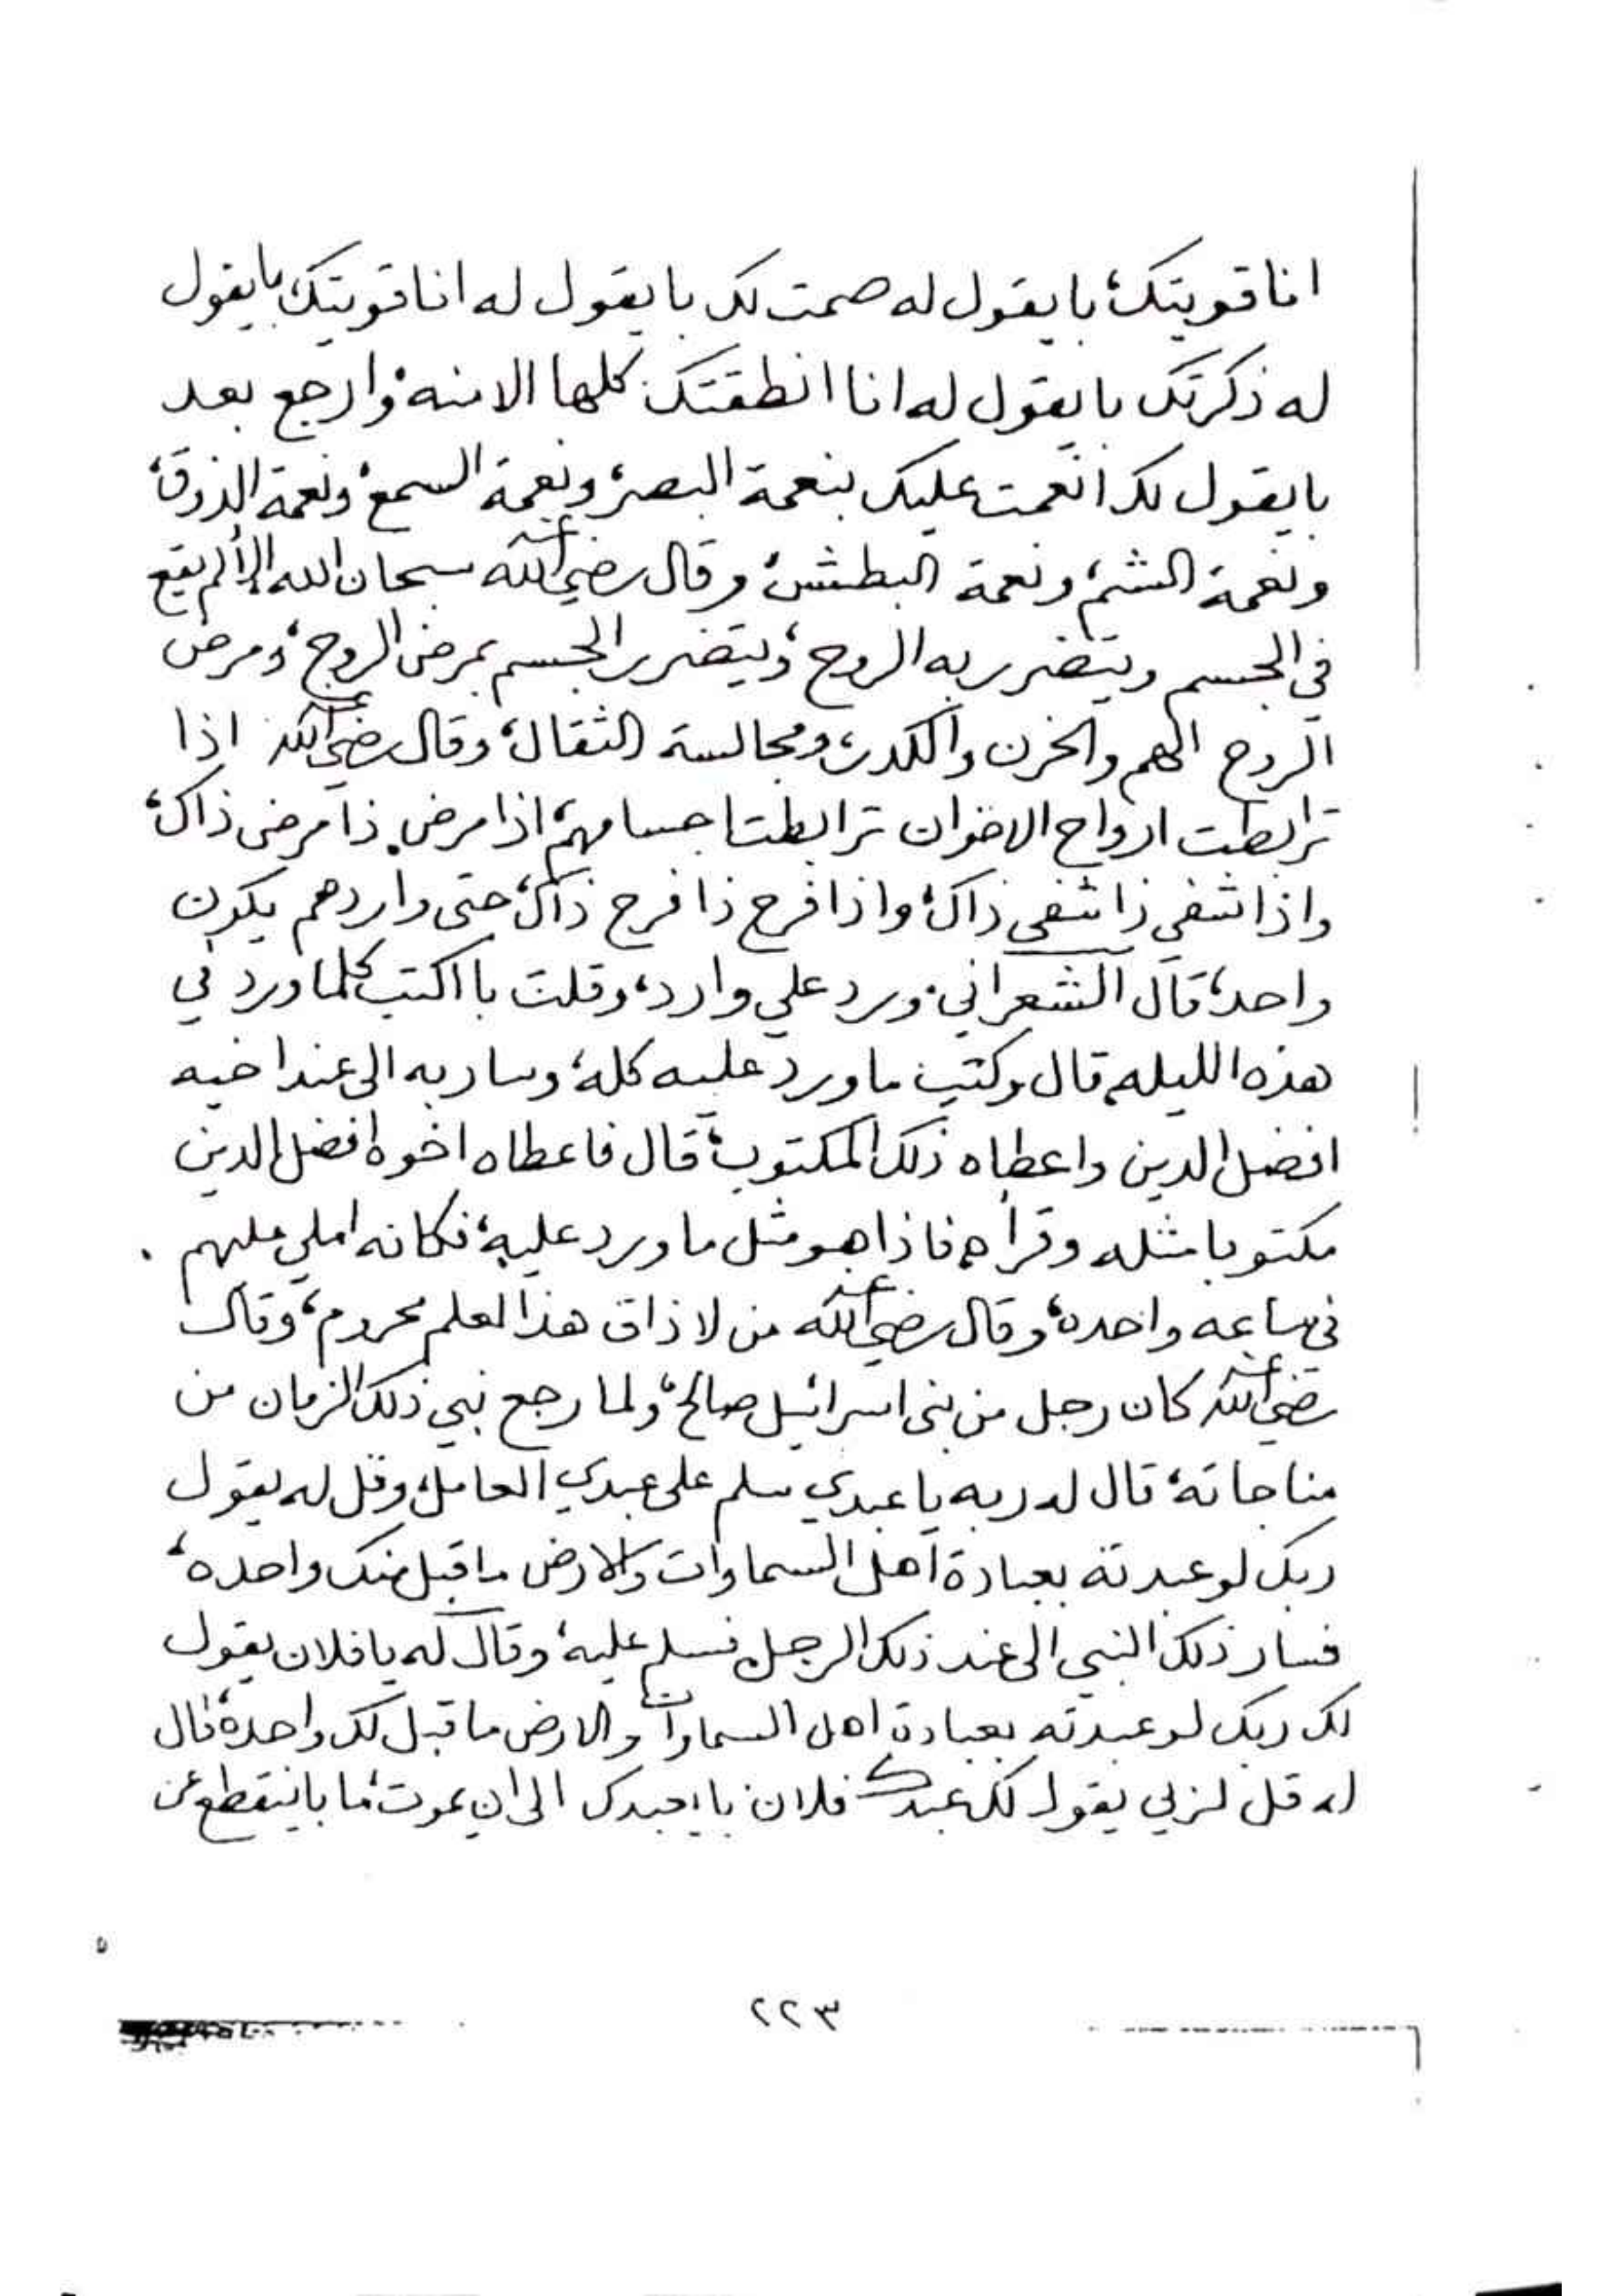 انا قويتك، بايقول له صمت لك بايقول له انا قويتك، بايقول
له ذكرتك بايقول له انا انطقتك كلها الا منه، وارجع بعد
بايقول لك انعمت عليك بنعمة البصر، ونعمة السمع، ونعمة الذوق،
ونعمة الشم، ونعمة البطش، وقال رضي الله عنه سبحان الله الألم يقع
في الجسم ويتضرر به الروح، ويتضرر الجسم بمرض الروح، ومرض
الروح الهم والحزن والكدر، ومجالسة الثقال، وقال رضي الله عنه اذا
ترابطت ارواح الاخوان ترابطت اجسامهم، اذا مرض ذا مرض ذاك،
واذا شفي ذا شفي ذاك، واذا فرح ذا فرح ذاك، حتى واردهم يكون
واحد، قال الشعراني، ورد علي وارد، وقلت با اكتب كلما ورد في
هذه الليله، قال وكتب ما ورد عليه كله، وسار به الى عند اخيه
افضل الدين واعطاه ذلك المكتوب، قال فاعطاه اخوه افضل الدين
مكتوبا مثله وقرأه، فاذا هو مثل ما ورد عليه، فكانه املي عليهم
في ساعه واحده، وقال رضي الله عنه من لا ذاق هذا العلم محروم، وقال
رضي الله عنه كان رجل من بني اسرائيل صالح، ولما رجع نبي ذلك الزمان من
مناجاته، قال له ربه يا عبدي سلم على عبدي العامل، وقل له يقول
ربك لو عبدته بعبادة اهل السماوات والارض ما قبل منك واحده،
فسار ذلك النبي الى عند ذلك الرجل، فسلم عليه، وقال له يا فلان يقول
لك ربك لو عبدته بعبادة اهل السماوات والارض ما قبل لك واحدة، قال
له قل لربي يقول لك عبدك فلان با اعبدك الى ان يموت، ما با ينقطع عن
٢٢٣